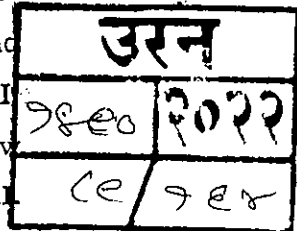 उरन
१४९० २०२२
८९/१९४